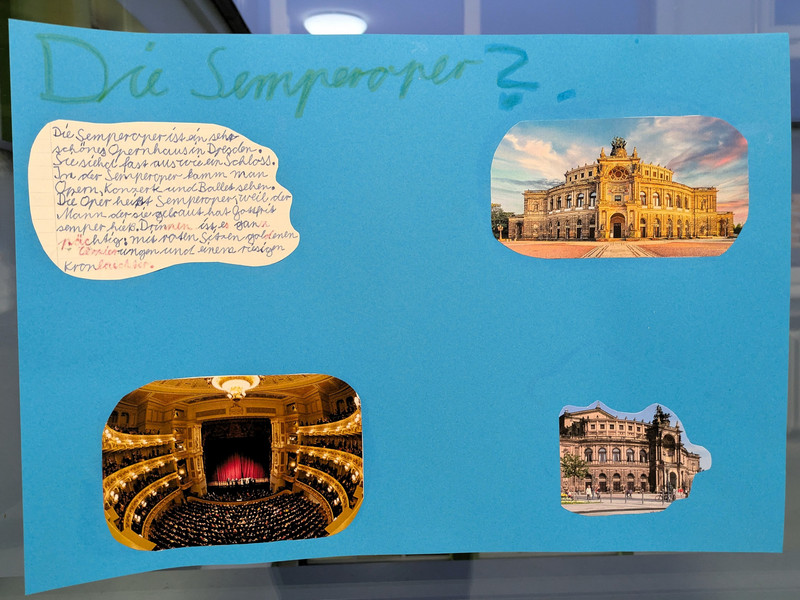 Die Semperoper?.
Die Semperoper ist ein sehr
schönes Opernhaus in Dresden.
Sie sieht fast aus wie ein Schloss.
In der Semperoper kamm man
Opern, Konzerk und Ballet sehen.
Die Oper heißt Semperoper, weil der
Mann der sie gebaut hat Gottfrit
semper hieß. Drinnen ist es ganz
prächtig, mit roten Sitzen goldenen
Verzierungen und einem riesigen
Kronleuchter.